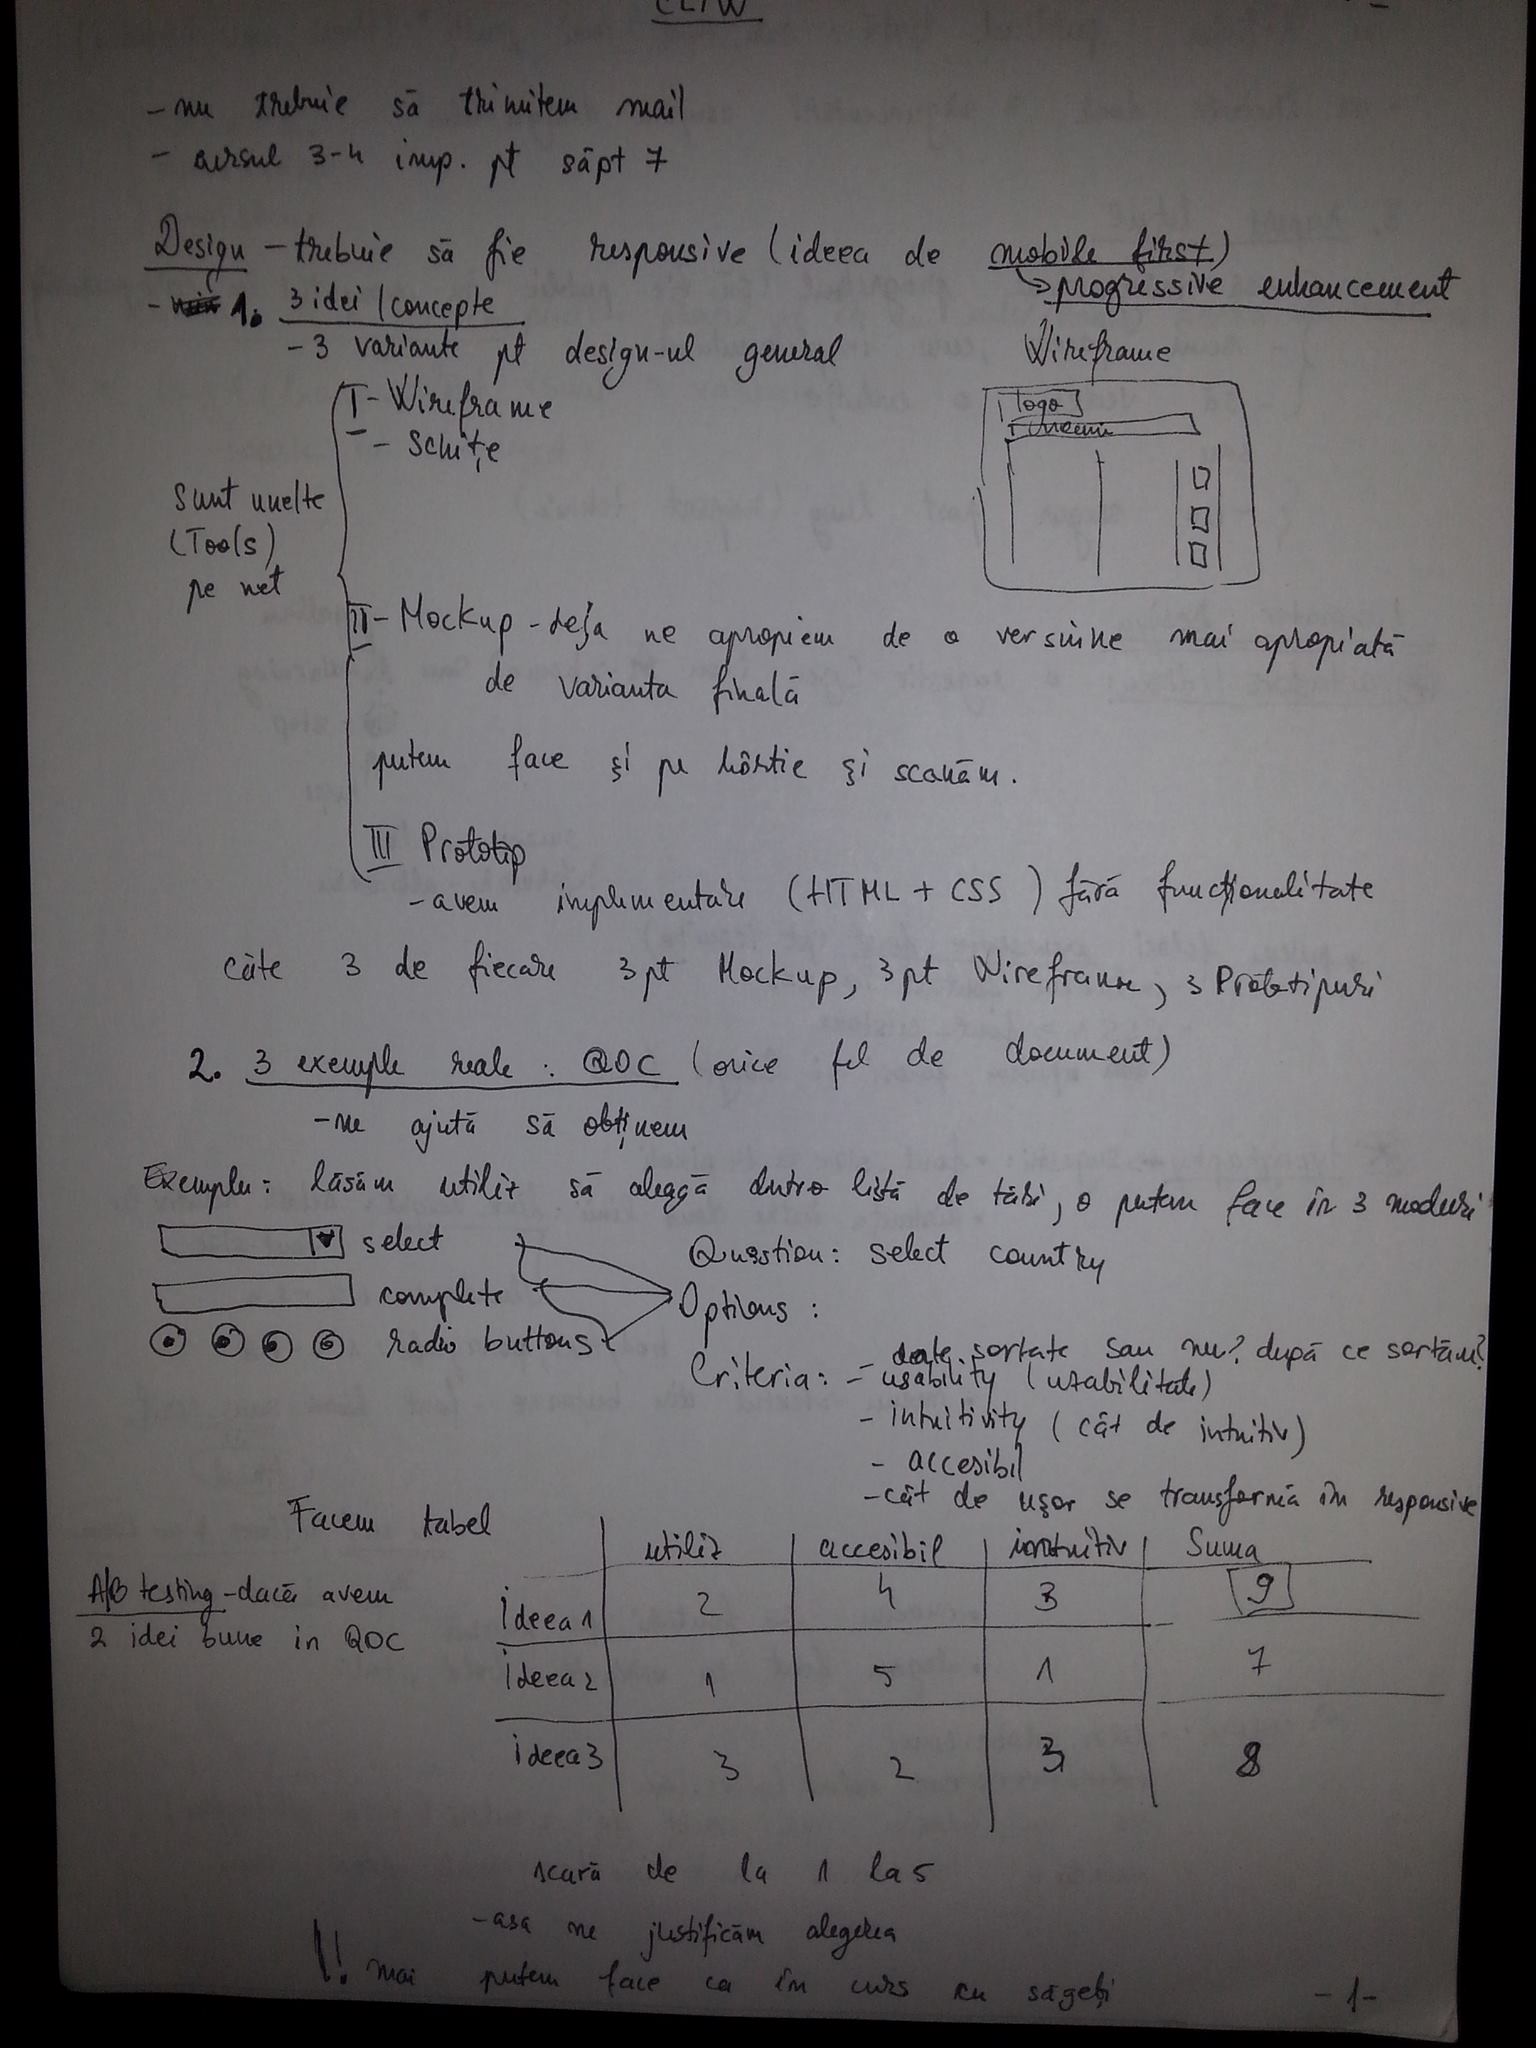 CLIW
- nu trebuie să trimitem mail
- cursul 3-4 imp. pt săpt 7
Design - trebuie să fie responsive (ideea de mobile first)
→ progressive enhancement
- 1. 3 idei / concepte
- 3 variante pt design-ul general
Wireframe
I - Wireframe
- schițe
logo
meniu
sunt unelte
(Tools)
pe net
II - Mockup - deja ne apropiem de o versiune mai apropiată
de varianta finală
putem face și pe hârtie și scanăm.
III Prototip
- avem implementare (HTML + CSS) fără funcționalitate
câte 3 de fiecare 3 pt Mockup, 3 pt Wireframe, 3 Prototipuri
2. 3 exemple reale : QOC (orice fel de document)
- ne ajută să obținem
Exemplu: lăsăm utiliz să aleagă dintr-o listă de țări, o putem face în 3 moduri
select
Question: select country
complete
Options :
radio buttons
- date sortate sau nu? după ce sortăm?
Criteria: - usability (uzabilitate)
- intuitivity (cât de intuitiv)
- accesibil
- cât de ușor se transformă în responsive
Facem tabel
utiliz accesibil intuitiv Suma
A/B testing - dacă avem
2 idei bune in QOC
ideea 1 2 4 3 9
ideea 2 1 5 1 7
ideea 3 3 2 3 8
scară de la 1 la 5
- asa ne justificăm alegerea
!! mai putem face ca în curs cu săgeți
- 1 -